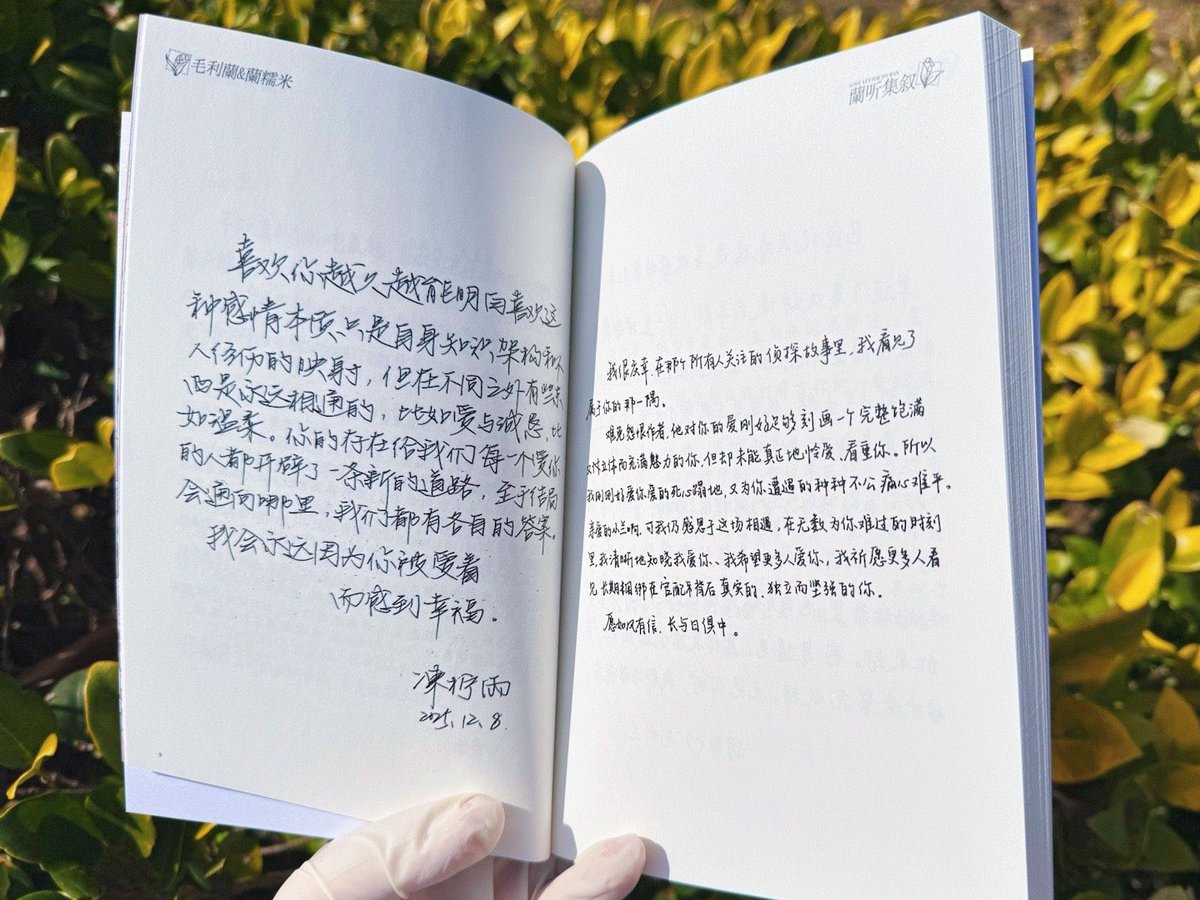 毛利蘭&蘭糯米
喜欢你越久越能明白喜欢这
种感情本质只是自身知识架构和个
人经历的映射，但在不同之外有些东
西是永远相通的，比如爱与诚恳，比
如温柔。你的存在给我们每一个爱你
的人都开辟了一条新的道路，至于结局
会通向哪里，我们都有各自的答案。
我会永远因为你被爱着
而感到幸福。
2025.12.8
LOVE LETTER TO RAN
蘭听集叙
我很庆幸，在那个所有人关注的侦探故事里，我看见了
属于你的那一隅。
难免怨恨作者，他对你的爱刚好足够刻画一个完整饱满
立体而充满魅力的你，但却未能真正地怜爱、看重你。所以
我刚刚好爱你爱的死心蹋地，又为你遭遇的种种不公痛心难平。
亲爱的小兰啊，可我仍感恩于这场相遇，在无数为你难过的时刻
里，我清晰地知晓我爱你、我希望更多人爱你，我祈愿更多人看
见长期捆绑在官配吊背后真实的、独立而坚强的你。
愿如风有信，长与日俱中。